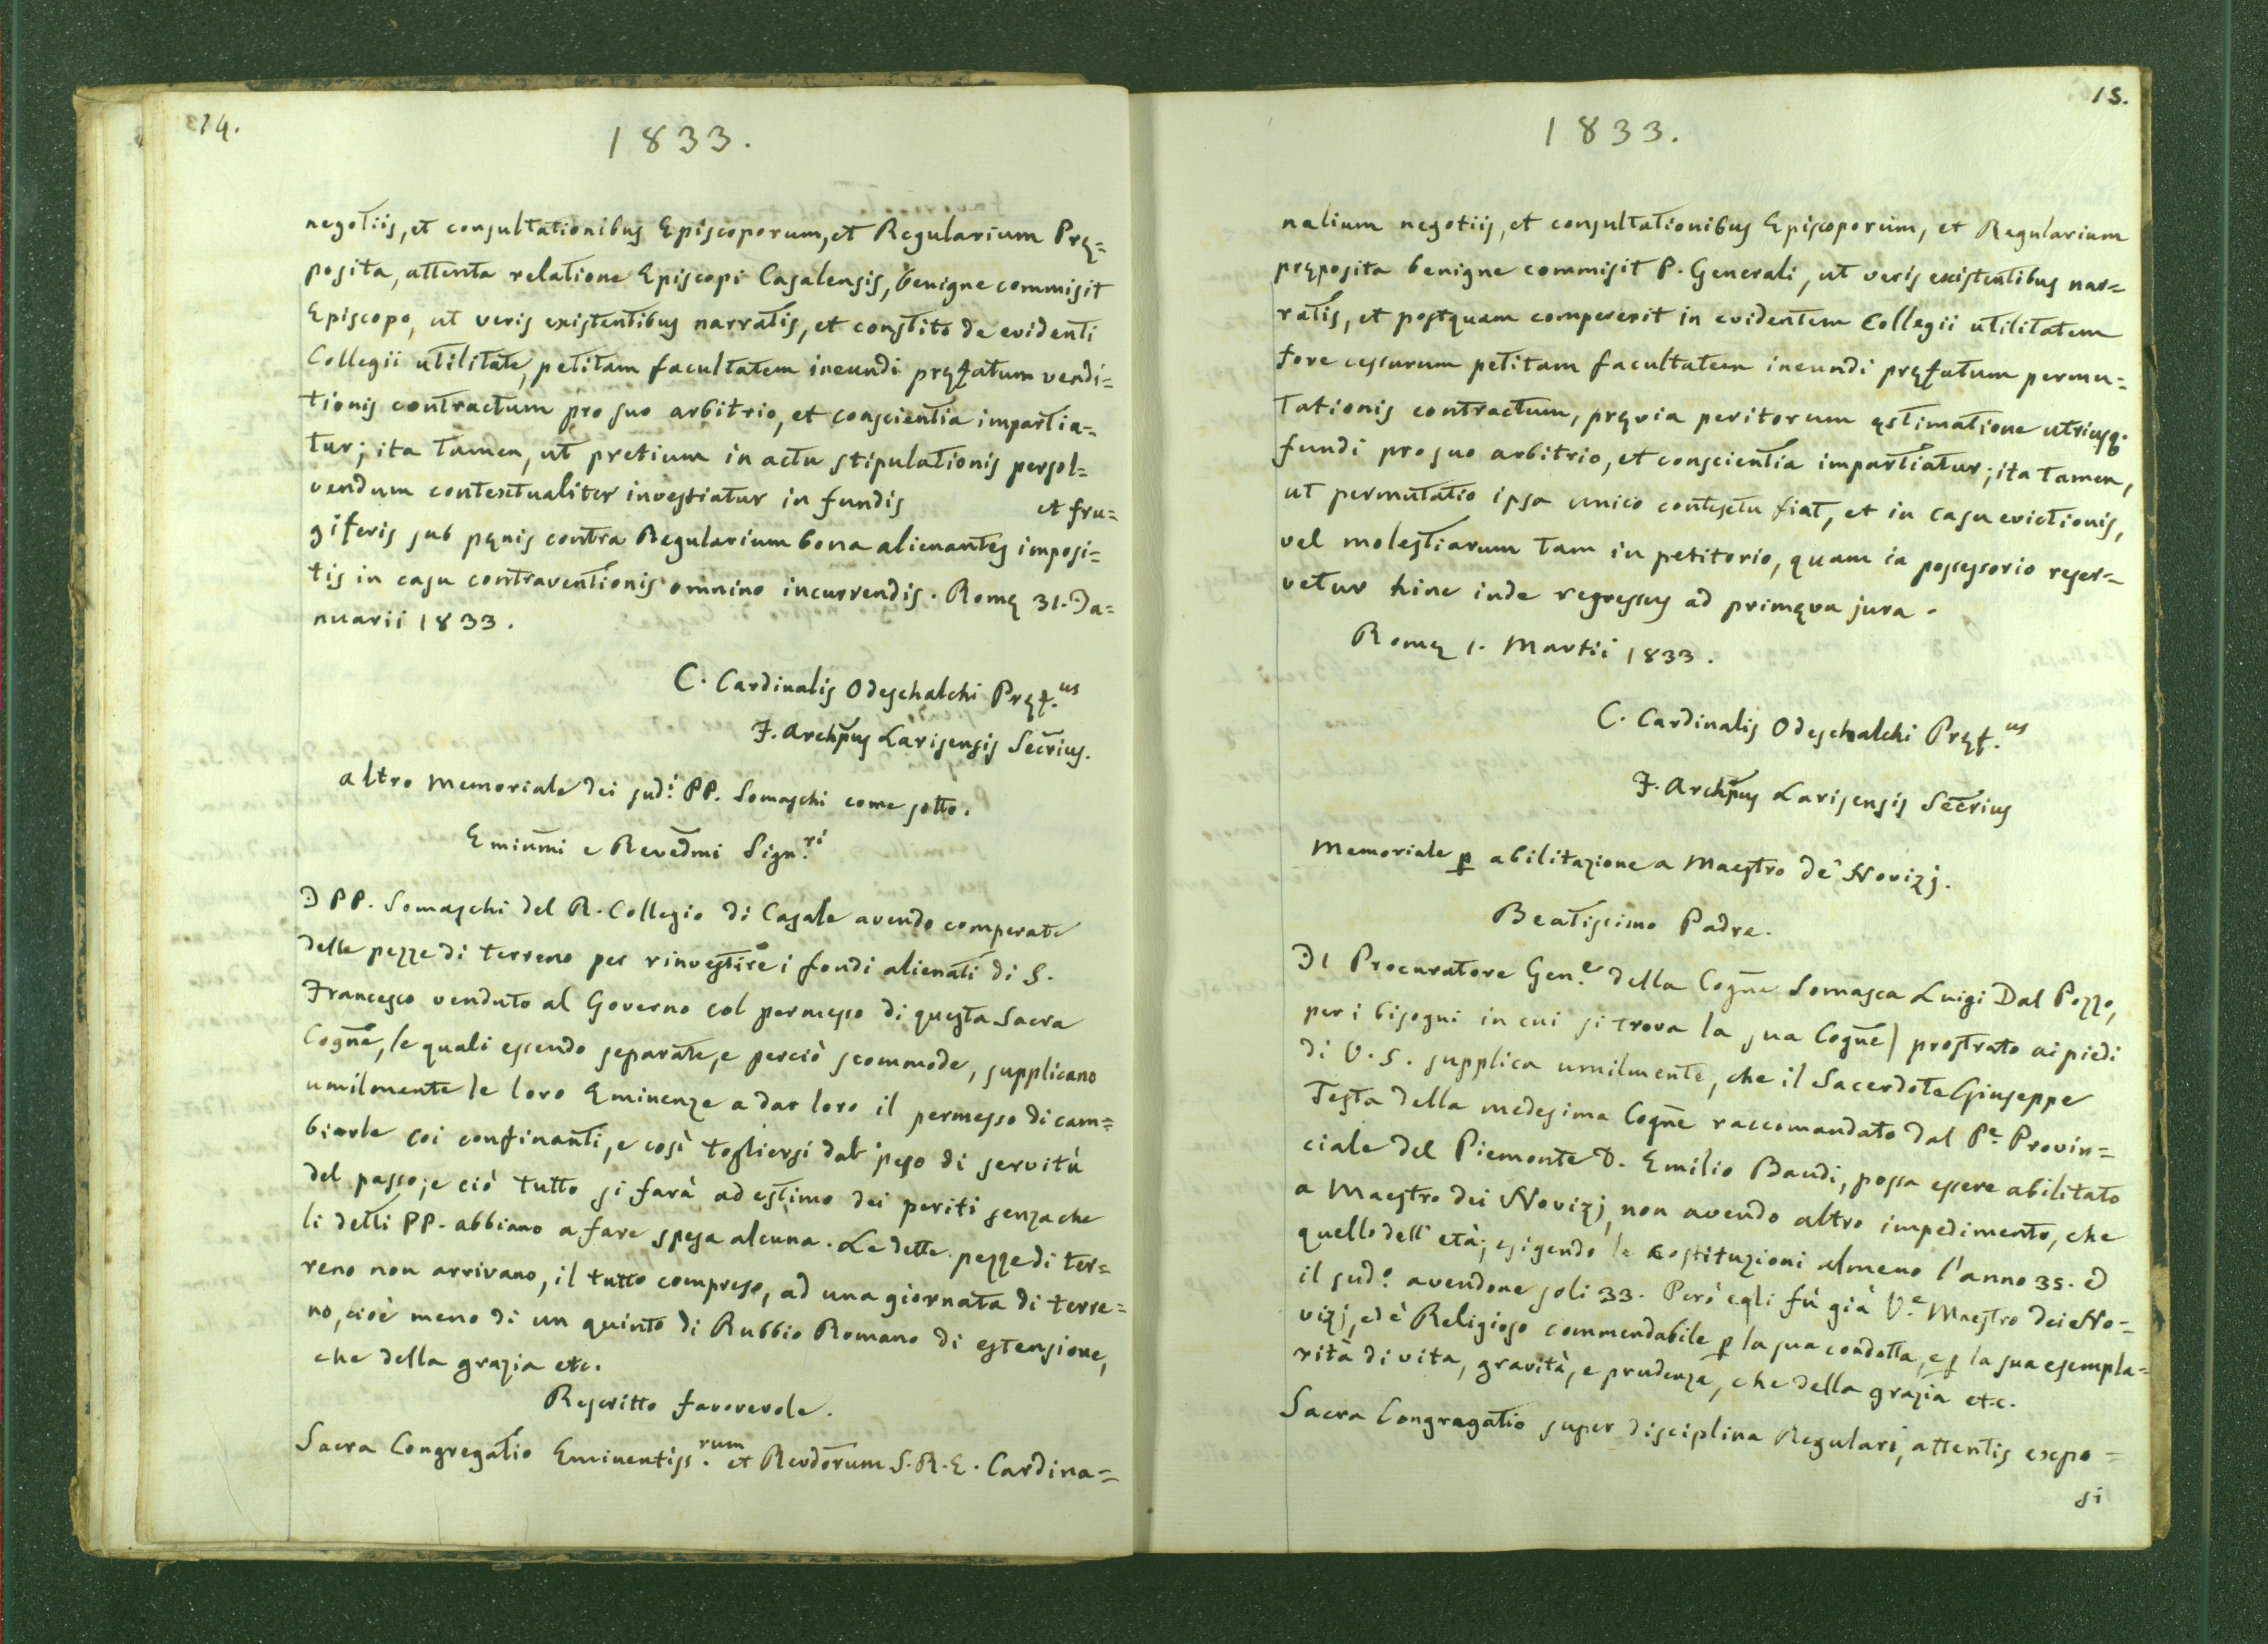 14.
1833.
negotiis, et consultationibus Episcoporum, et Regularium Prę=
posita, attenta relatione Episcopi Casalensis, benigne commisit
Episcopo, ut veris existentibus narratis, et constito de evidenti
Collegii utilitate, petitam facultatem ineundi pręfatum vendi=
tionis contractum pro suo arbitrio, et conscientia impartia=
tur; ita tamen, ut pretium in actu stipulationis persol=
vendum contextualiter investiatur in fundis et fru=
giferis sub pęnis contra Regularium bona alienantes imposi=
tis in casu contraventionis omnino incurrendis. Romę 31. Ja=
nuarii 1833.
C. Cardinalis Odeschalchi Pręf.us
F. Archpus Larisensis Secrius.
altro Memoriale dei sud.i PP. Somaschi come sotto.
Emiumi e Revedmi Sign.ri
I PP. Somaschi del R. Collegio di Casale avendo comperate
delle pezze di terreno per rinvestire i fondi alienati di S.
Francesco venduto al Governo col permesso di questa Sacra
Cogne, le quali essendo separate, e perciò scommode, supplicano
umilmente le loro Eminenze a dar loro il permesso di cam=
biarle coi confinanti, e così togliersi dal peso di servitù
del passo; e ciò tutto si farà ad estimo dei periti senza che
li detti PP. abbiano a fare spesa alcuna. Le dette pezze di ter=
reno non arrivano, il tutto compreso, ad una giornata di terre=
no, cioè meno di un quinto di Rubbio Romano di estensione,
che della grazia etc.
Rescritto favorevole.
Sacra Congregatio Eminentiss.rum et Revdorum S. R. E. Cardina=
15.
1833.
nalium negotiis, et consultationibus Episcoporum, et Regularium
pręposita benigne commisit P. Generali, ut veris existentibus nar=
ratis, et postquam compererit in evidentem Collegii utilitatem
fore cessurum petitam facultatem ineundi pręfatum permu=
tationis contractum, pręvia peritorum ęstimatione utriusq;
fundi pro suo arbitrio, et conscientia impartiatur; ita tamen,
ut permutatio ipsa unico contextu fiat, et in casu evictionis,
vel molestiarum tam in petitorio, quam in possessorio reser=
vetur hinc inde regressus ad primęva jura.
Romę 1. Martii 1833.
C. Cardinalis Odeschalchi Pręf.us
F. Archpus Larisensis Secrius
Memoriale p abilitazione a Maestro de' Novizj.
Beatissimo Padre.
Il Procuratore Gen.e della Cogne Somasca Luigi Dal Pozzo,
per i bisogni in cui si trova la sua Cogne) prostrato ai piedi
di V. S. supplica umilmente, che il Sacerdote Giuseppe
Testa della medesima Cogne raccomandato dal Pe. Provin=
ciale del Piemonte D. Emilio Baudi, possa essere abilitato
a Maestro dei Novizj, non avendo altro impedimento, che
quello dell' età; esigendo le costituzioni almeno l'anno 35. ed
il sud.o avendone soli 33. Però egli fù già V.e Maestro dei No=
vizj, ed è Religioso commendabile p la sua condotta, e p la sua esempla=
rità di vita, gravità, e prudenza, che della grazia etc.
Sacra Congregatio super disciplina Regulari, attentis expo=
si